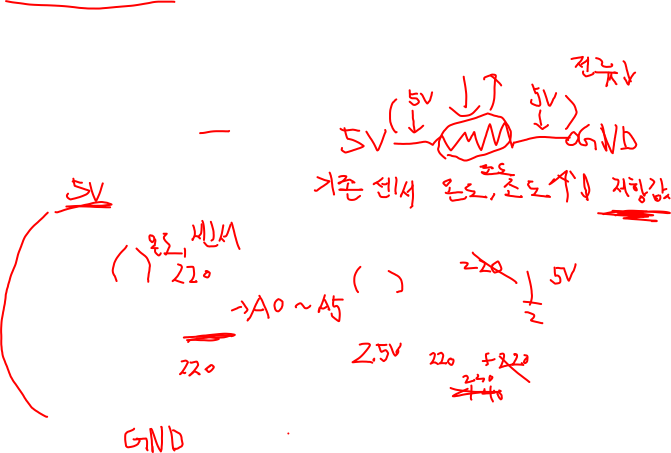 전류↓
5V 5V
5V GND
조도
기존 센서 온도, 조도 ↑↓ 저항값
5V
온도, 센서
( ) 220
→A0 ~ A5 ( )
220 1/2 5V
220
2.5V
220 + 220
230
440
GND